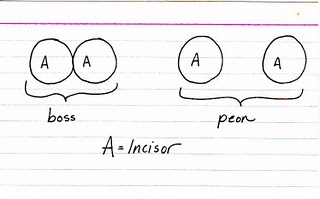 A A A A
boss peon
A = Incisor